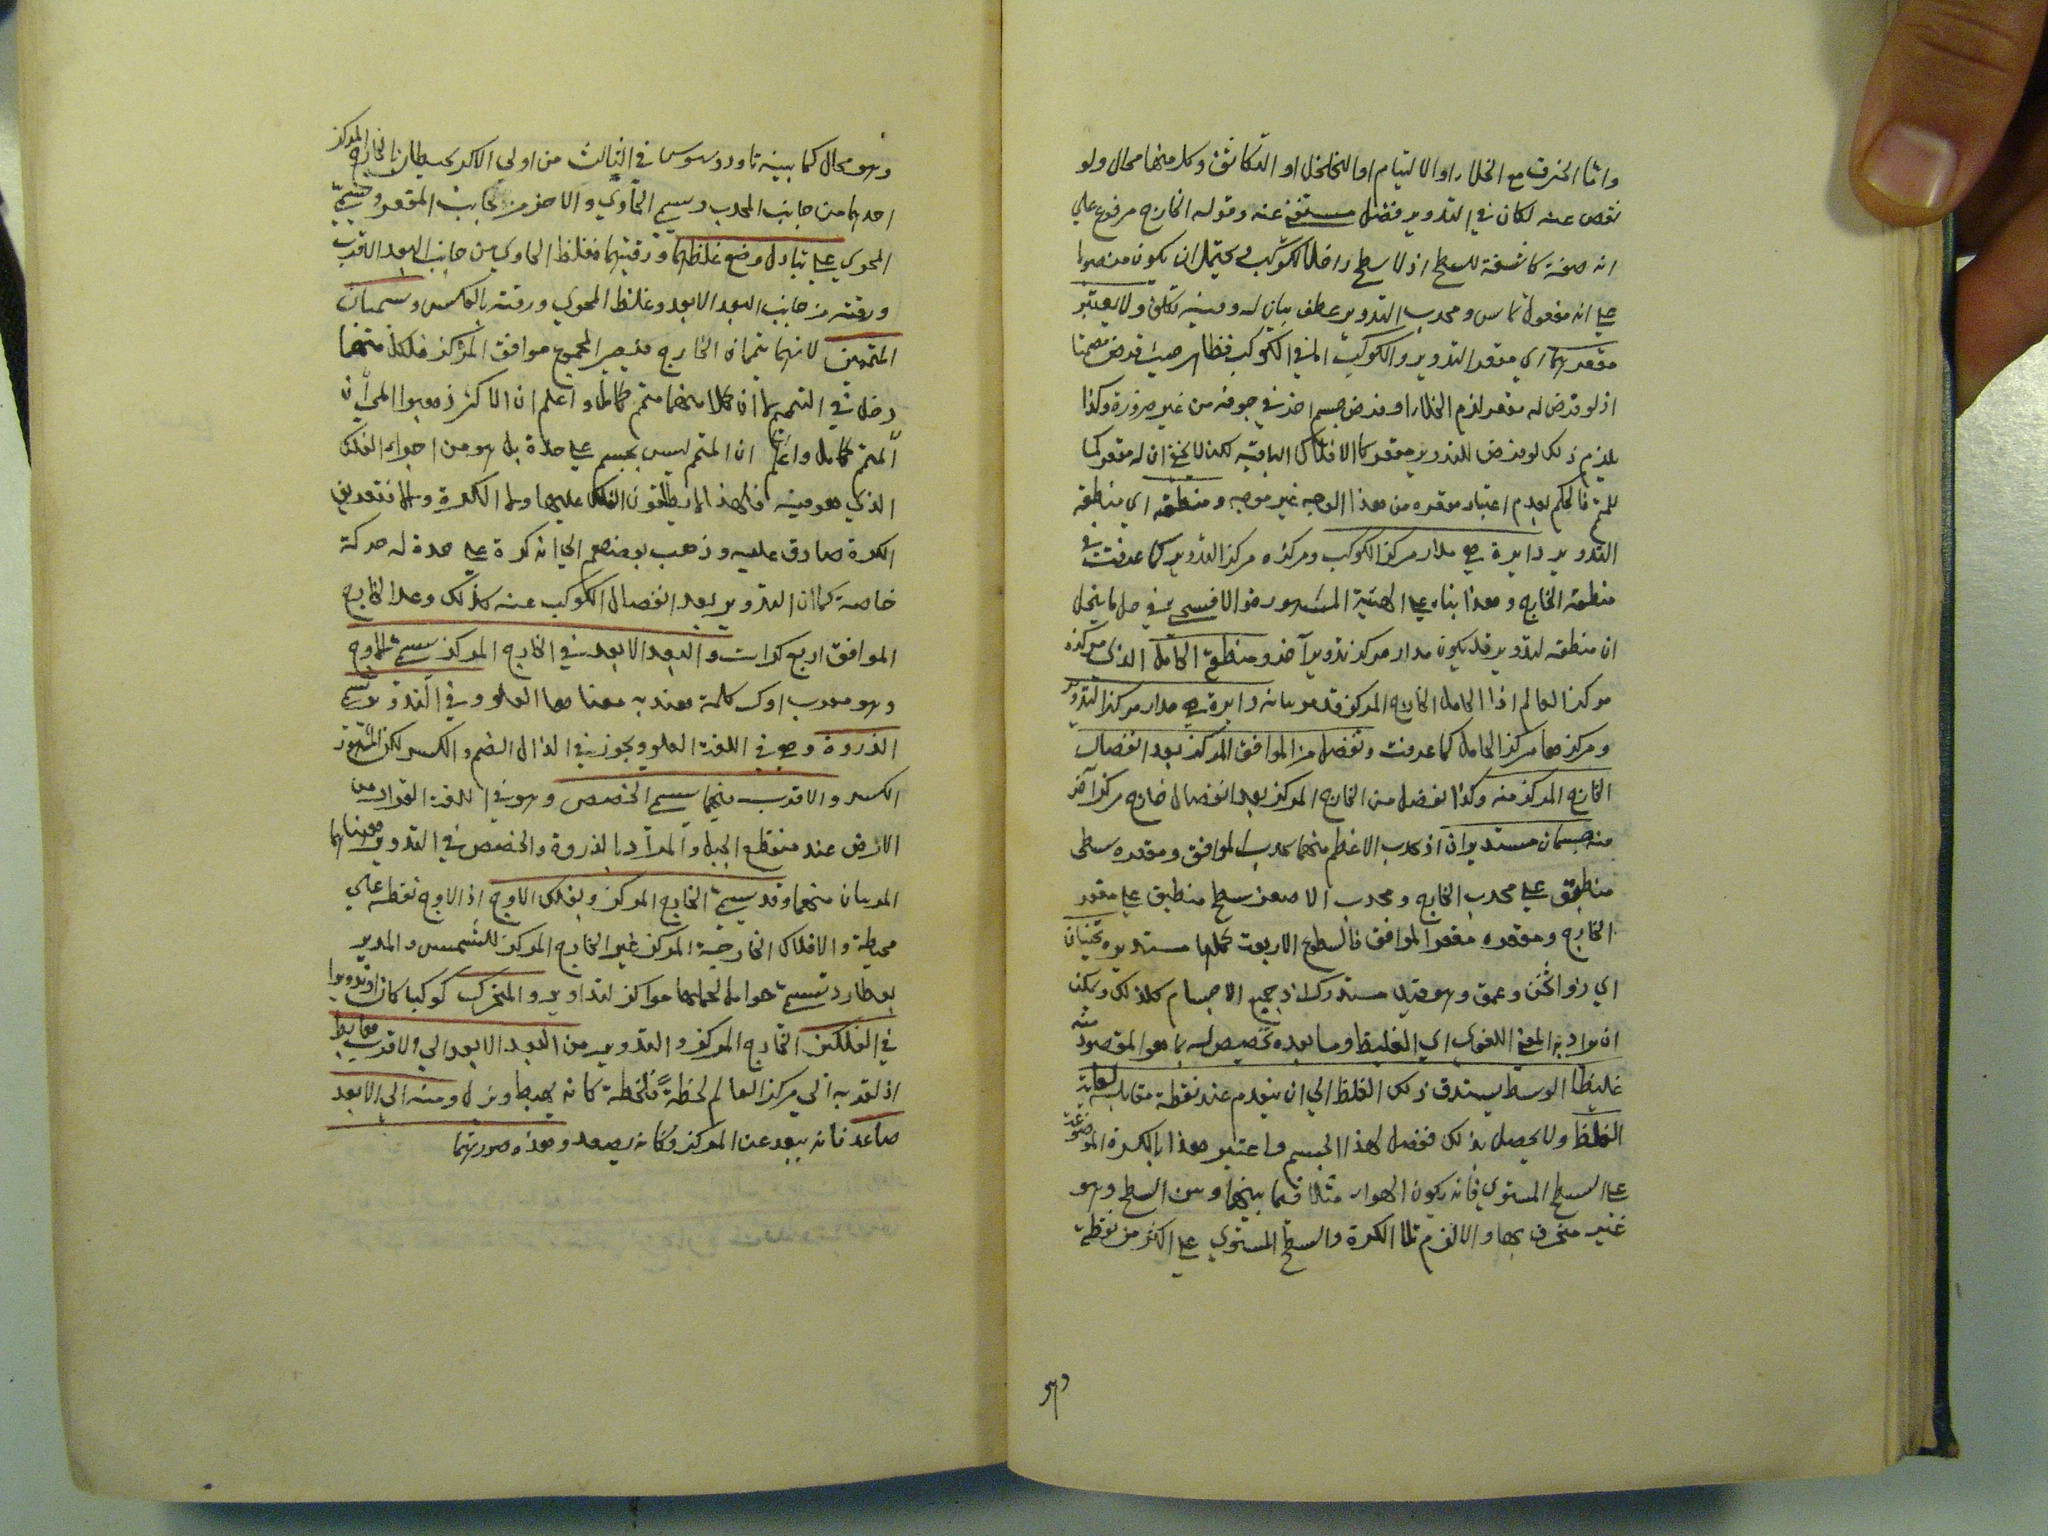 واما الخرق مع الخلاء او الالتيام او التخلخل او التكاثف وكل منها محال ولو
نقص عنه لكان في التدوير فضل مستغنى عنه وقوله الخارج مرفوع على
انه صفة كاشفة للسطح اذ لا سطح داخلا للكوكب ويحتمل ان يكون منصوبا
على انه مفعول تماس ومحدب التدوير عطف بيان له وفيه تكلف ولا يعتبر
مقعرهما اي مقعر التدوير والكوكب اما في الكوكب فظاهر حيث فرض مصمتا
اذ لو فرض له مقعر لزم الخلاء او فرض جسم اخر في جوفه من غير ضرورة وكذا
يلزم ذلك لو فرض للتدوير مقعر كالافلاك الباقية لكن لا يخفى ان له مقعر كما
للمتمم فالحكم بعدم اعتبار مقعره من هذا الوجه غير موجه ومنطقته اي منطقة
التدوير دايرة هي مدار مركز الكوكب ومركزه مركز التدوير كما عرفت في
منطقة الخارج وهذا بناء على الهيئة المشهورة والا فسيجي في حل ما ينحل
ان منطقة تدوير قد يكون مدار مركز تدوير آخر ومنطقة الحامل الذي مركزه
مركز العالم اذا الحامل الخارج المركز قد مر بيانه دايرة هي مدار مركز التدوير
ومركزها مركز الحامل كما عرفت وتفضل من الموافق المركز بعد انفصال
الخارج المركز منه وكذا يفضل من الخارج المركز بعد انفصال خارج مركز آخر
منه جسمان مستديران اذ محدب الاعظم منهما محدب الموافق ومقعره سطح
منطبق على محدب الخارج ومحدب الاصغر سطح منطبق على مقعر
الخارج ومقعره مقعر الموافق فالسطوح الاربعة كلها مستديرة ثخينان
اي ذوا ثخن وعمق وهو قيد مستدرك اذ جميع الاجسام كذلك ويمكن
ان يراد به المعنى اللغوي اي الغليظ وما بعده تخصيص له بما هو المقصود منه
غليظا الوسط يستدق ذلك الغلظ الى ان ينعدم عند نقطة مقابلة لغاية
الغلظ ولا يحصل بذلك فضل لهذا الجسم واعتبر هذا بالكرة الموضوعة
على السطح المستوي فانه يكون الهواء مثلا فيما بينهما وبين السطح وهو
غير منخرق بها والا لزم تماس الكرة والسطح المستوي على اكثر من نقطة
وهو
وهو محال كما بينه ثاوذوسيوس في الثالث من اولى الاكر يحيطان بالخارج المركز
احدهما من جانب المحدب ويسمى الحاوي والاخر من جانب المقعر ويسمى
المحوي على تبادل وضع غلظهما ورقتهما فغلظ الحاوي من جانب البعد الاقرب
ورقته من جانب البعد الابعد وغلظ المحوي ورقته بالعكس ويسميان
المتممين لانهما يتممان الخارج فيصير المجموع موافق المركز فلكل منهما
دخل في التتميم لا ان كلا منهما متمم كامل واعلم ان الاكثر ذهبوا الى ان
المتمم كامل واعلم ان المتمم ليس بجسم على حدة بل هو من اجزاء الفلك
الذي هو فيه فلهذا لا يطلقون الفلك عليها ولا الكرة والا فتعريف
الكرة صادق عليه وذهب بعضهم الى انه كرة على حدة له حركة
خاصة كما ان التدوير بعد انفصال الكوكب عنه كذلك وعد الخارج
الموافق اربع كرات والبعد الابعد في الخارج المركز يسمى الاوج
وهو معرب اوك كلمة هندية معناها العلو وفي التدوير يسمى
الذروة وهو في اللغة العلو ويجوز في الذال الضم والكسر لكن المشهور
الكسر والاقرب منهما يسمى الحضيض وهو في اللغة القرار من
الارض عند منقطع الجبل والمراد بالذروة والحضيض في التدوير معناهما
المرئيان منهما وقد يسمى الخارج المركز وبفلك الاوج اذ الاوج نقطة على
محيطه والافلاك الخارجة المركز غير الخارج المركز للشمس والمدير
لعطارد تسمى حوامل لحملها مراكز لتداوير والمتحرك كوكبا كان او تدويرا
في الفلكين الخارج المركز والتدوير من البعد الابعد الى الاقرب هابط
اذ لقربه الى مركز العالم لحظة فلحظة كانه يهبط وينزل ومنه الى الابعد
صاعد فانه يبعد عن المركز وكانه يصعد وهذه صورتهما